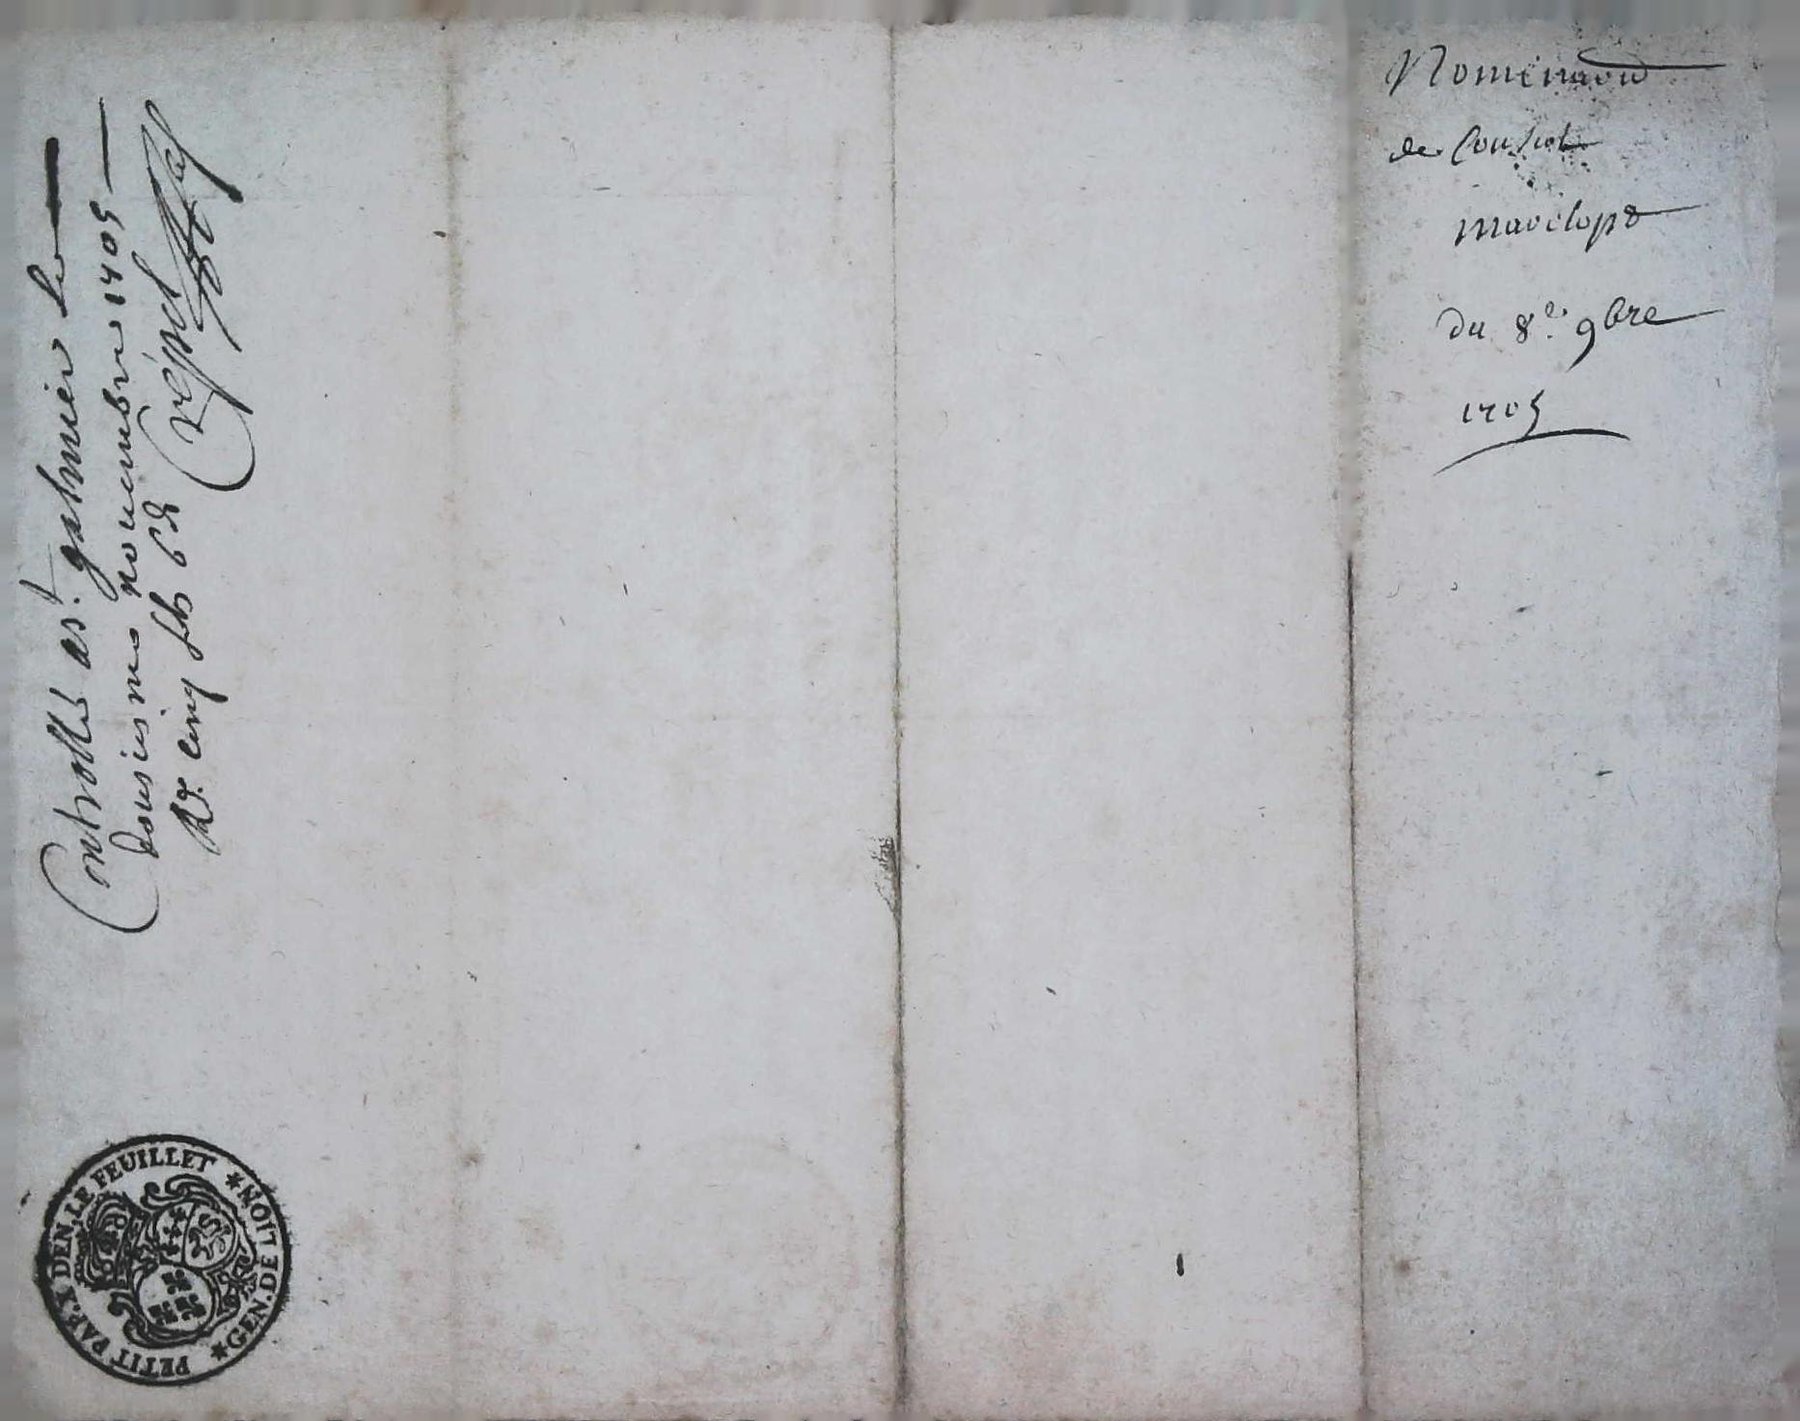 Controllé a St. galmier le
dousiesme nouembre 1705
Rt. cinq sls 6d
Nominaon
de Consul
mavelope
du 8e. 9bre
1705
PETIT PAP. X DEN. LE FEUILLET * GEN. DE LION *